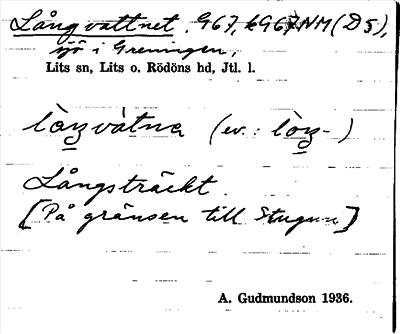 Långvattnet. G67, NM (D5),
sjö i Greningen,
Lits sn, Lits o. Rödöns hd, Jtl. l.
làŋvàtna (ev.: lòŋ-)
Långsträckt.
[På gränsen till Stugun]
A. Gudmundson 1936.